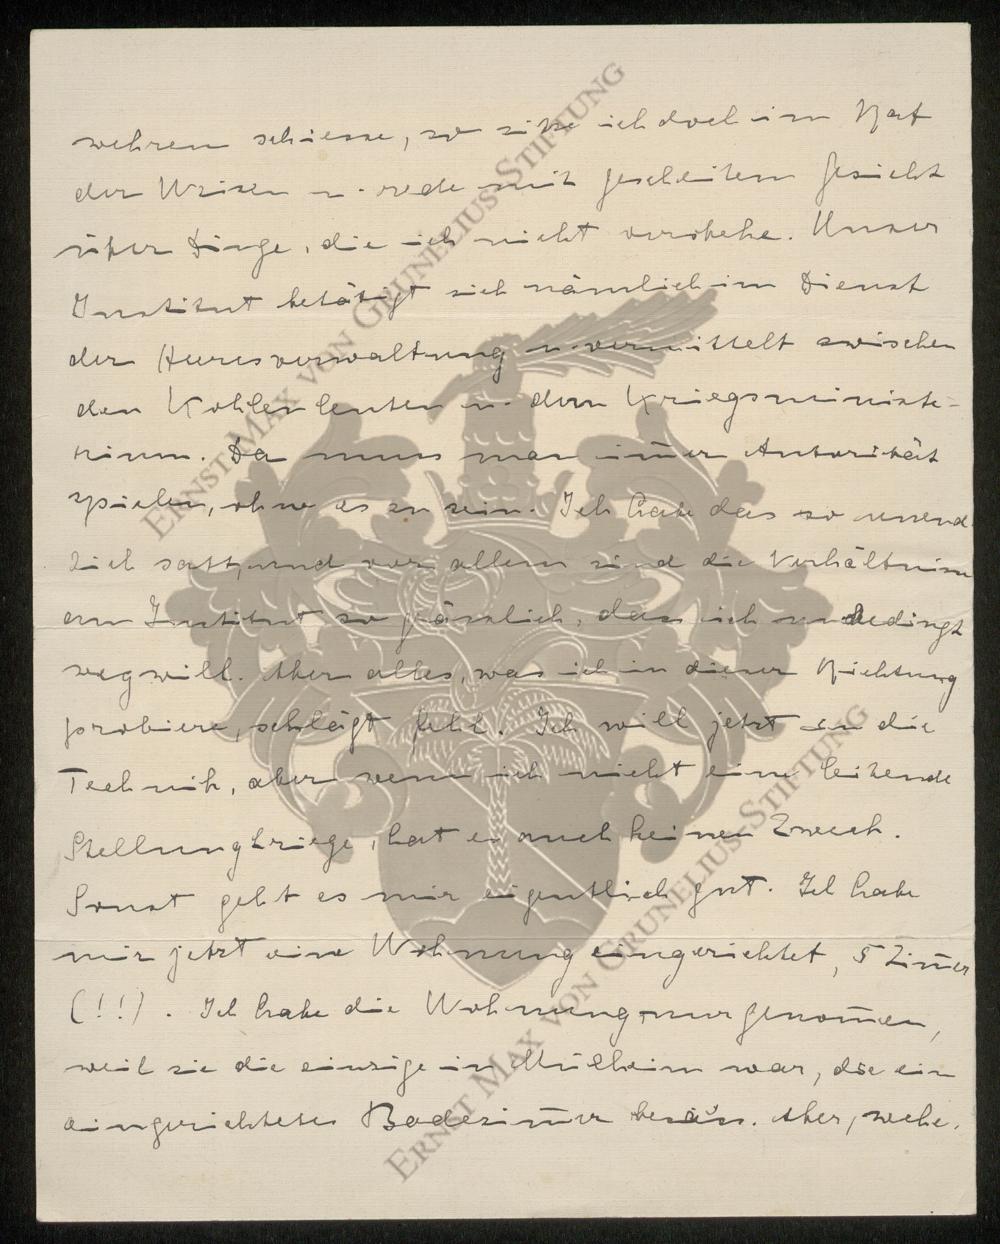 wehren schiesse, so sitze ich doch im Rat
der Weisen u. rede mit gescheitem Gesicht
über Dinge, die ich nicht verstehe. Unser
Institut betätigt sich nämlich im Dienst
der Heeresverwaltung u. vermittelt zwischen
den Kohlenleuten u. dem Kriegsministe-
rium. Da muss man im̅er Autorität
spielen, ohne es zu sein. Ich habe das so unend-
lich satt, und vor allem sind die Verhältnisse
am Institut so grässlich, dass ich unbedingt
weg will. Aber alles, was ich in dieser Richtung
probiere, schlägt fehl. Ich will jetzt in die
Technik, aber wenn ich nicht eine leitende
Stellung kriege, hat es auch keinen Zweck.
Sonst geht es mir eigentlich gut. Ich habe
mir jetzt eine Wohnung eingerichtet, 5 Zim̅er
(!!). Ich habe die Wohnung nur genom̅en,
weil sie die einzige in Mülheim war, die ein
eingerichtetes Badezim̅er besäss. Aber, wehe,
ERNST MAX VON GRUNELIUS-STIFTUNG
ERNST MAX VON GRUNELIUS-STIFTUNG